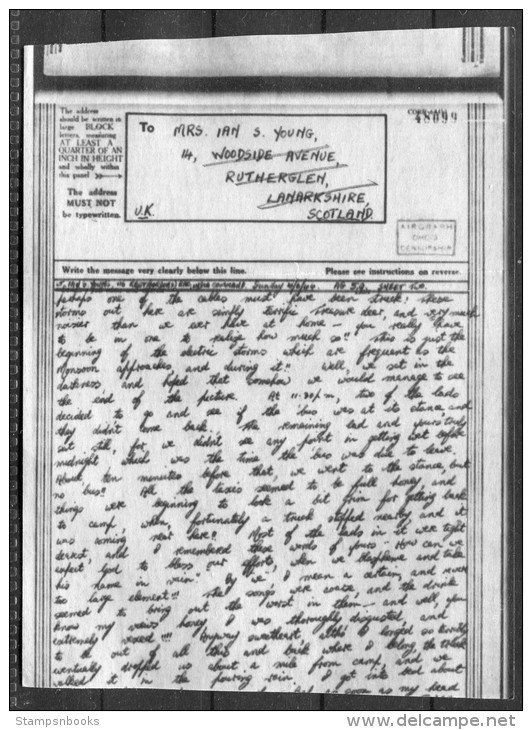 The address
should be written in
large BLOCK
letters, measuring
AT LEAST A
QUARTER OF AN
INCH IN HEIGHT
and wholly within
this panel
The address
MUST NOT
be typewritten.
To
MRS. IAN S. YOUNG,
14, WOODSIDE AVENUE,
RUTHERGLEN,
LANARKSHIRE,
SCOTLAND
U.K.
48099
AIRGRAPH
CENSORSHIP
Write the message very clearly below this line. Please see instructions on reverse.
Sunday SHEET TWO
perhaps one of the cables must have been struck! These
storms out here are simply terrific treasure dear, and very much
noisier than we ever have at home – you really have
to be in one to realize how much so!! This is just the
beginning of the electric storms which are frequent as the
Monsoon approaches, and during it!! Well, we sat in the
darkness, and hoped that somehow we would manage to see
the end of the picture. At 11.30 p.m., two of the lads
decided to go and see if the bus was at its stance, and
they didn't come back. The remaining lad and yours truly
sat still, for we didn't see any point in getting wet before
midnight which was the time the bus was due to leave.
About ten minutes before that, we went to the stance, but
no bus!! All the taxis seemed to be full honey, and
things were beginning to look a bit grim for getting back
to camp, when, fortunately a truck stopped nearby and it
was coming near here!! Most of the lads in it were tight
dearest, and I remembered these words of yours "How can we
expect God to bless our effort, when we blaspheme and take
his name in vain". By 'we', I mean a certain, and ever
too large element!!! The songs were coarse, and the drink
seemed to bring out the worst in them – and well, you
know my views honey. I was thoroughly disgusted, and
extremely vexed!!!! Anyway sweetheart, altho' I longed so terribly
to be out of all this and back where I belong, the truck
eventually dropped us about a mile from camp, and we
walked it in the pouring rain. I got into bed about
as soon as my head
Stampsnbooks
www.delcampe.net